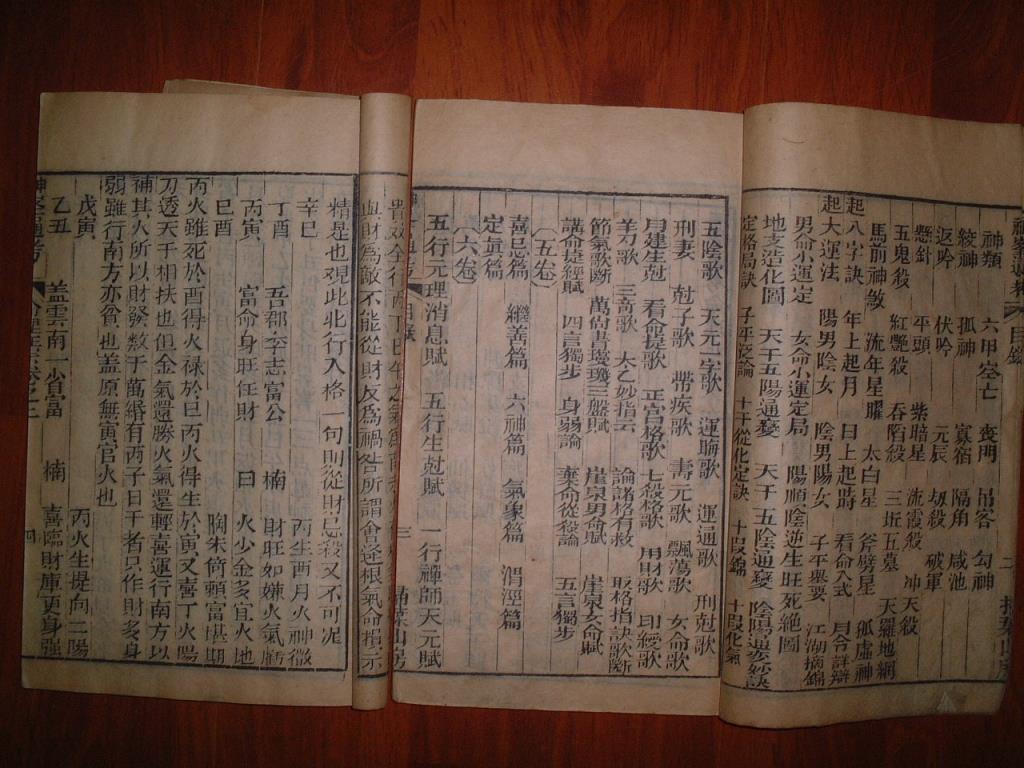 神類 六甲空亡 喪門 吊客 勾神
絞神 孤神 寡宿 隔角 咸池
返吟 伏吟 元辰 刼殺 破軍
懸針 平頭 紫暗星 流霞殺 冲天殺
五鬼殺 紅艷殺 吞陷殺 三坵五墓 天羅地網
馬前神煞 流年星曜 太白星 斧劈星 孤虛神
起八字訣 年上起月 日上起時 看命入式 月令詳辯
起大運法 陽男陰女 陰男陽女 子平舉要 江湖摘錦
男命小運定 女命小運定局 陽順陰逆生旺死絕圖
地支造化圖 天干五陽通變 天干五陰通變 陰陽通變妙訣
定格局訣 子平總論 十干從化定訣 十段錦 十段化氣
五陰歌 天元一字歌 運晦歌 運通歌 刑尅歌
刑妻 尅子歌 帶疾歌 壽元歌 飄蕩歌 女命歌
月建生尅 看命提歌 正官格歌 七殺格歌 用財歌 印綬歌
羊刃歌 三奇歌 太乙妙指云 論諸格有救 取格指訣歌斷
節氣歌斷 萬尚書璣盤賦 崖泉男命賦 崖泉女命賦
講命捷經賦 四言獨步 身弱論 棄命從殺論 五言獨步
〔五卷〕
喜忌篇 繼善篇 六神篇 氣象篇 渭涇篇
定眞篇
〔六卷〕
五行元理消息賦 五行生尅賦 一行禪師天元賦
與財爲敵不能從財反爲禍咎所謂會逆根氣命損三示
精是也观此北行入格一句則從財忌殺又不可泥
辛巳 丙生酉月火神微
丁酉 吾郡李志富公 楠 財旺如嫌火氣虧
丙寅 富命身旺任財 曰 火少金多宜火地
巳酉 胸朱倚頓富堪期
丙火雖死於酉得火禄於巳丙火得生於寅又喜丁火陽
刃透天干相扶也但金氣還勝火氣還輕喜運行南方以
補其火所以財發数于萬緡有丙子日干者只作財多身
弱雖行南方亦貧也蓋原無寅官火也
戊寅 丙火生提向二陽
乙丑 盖雲南一省富 楠 喜臨財庫更身强